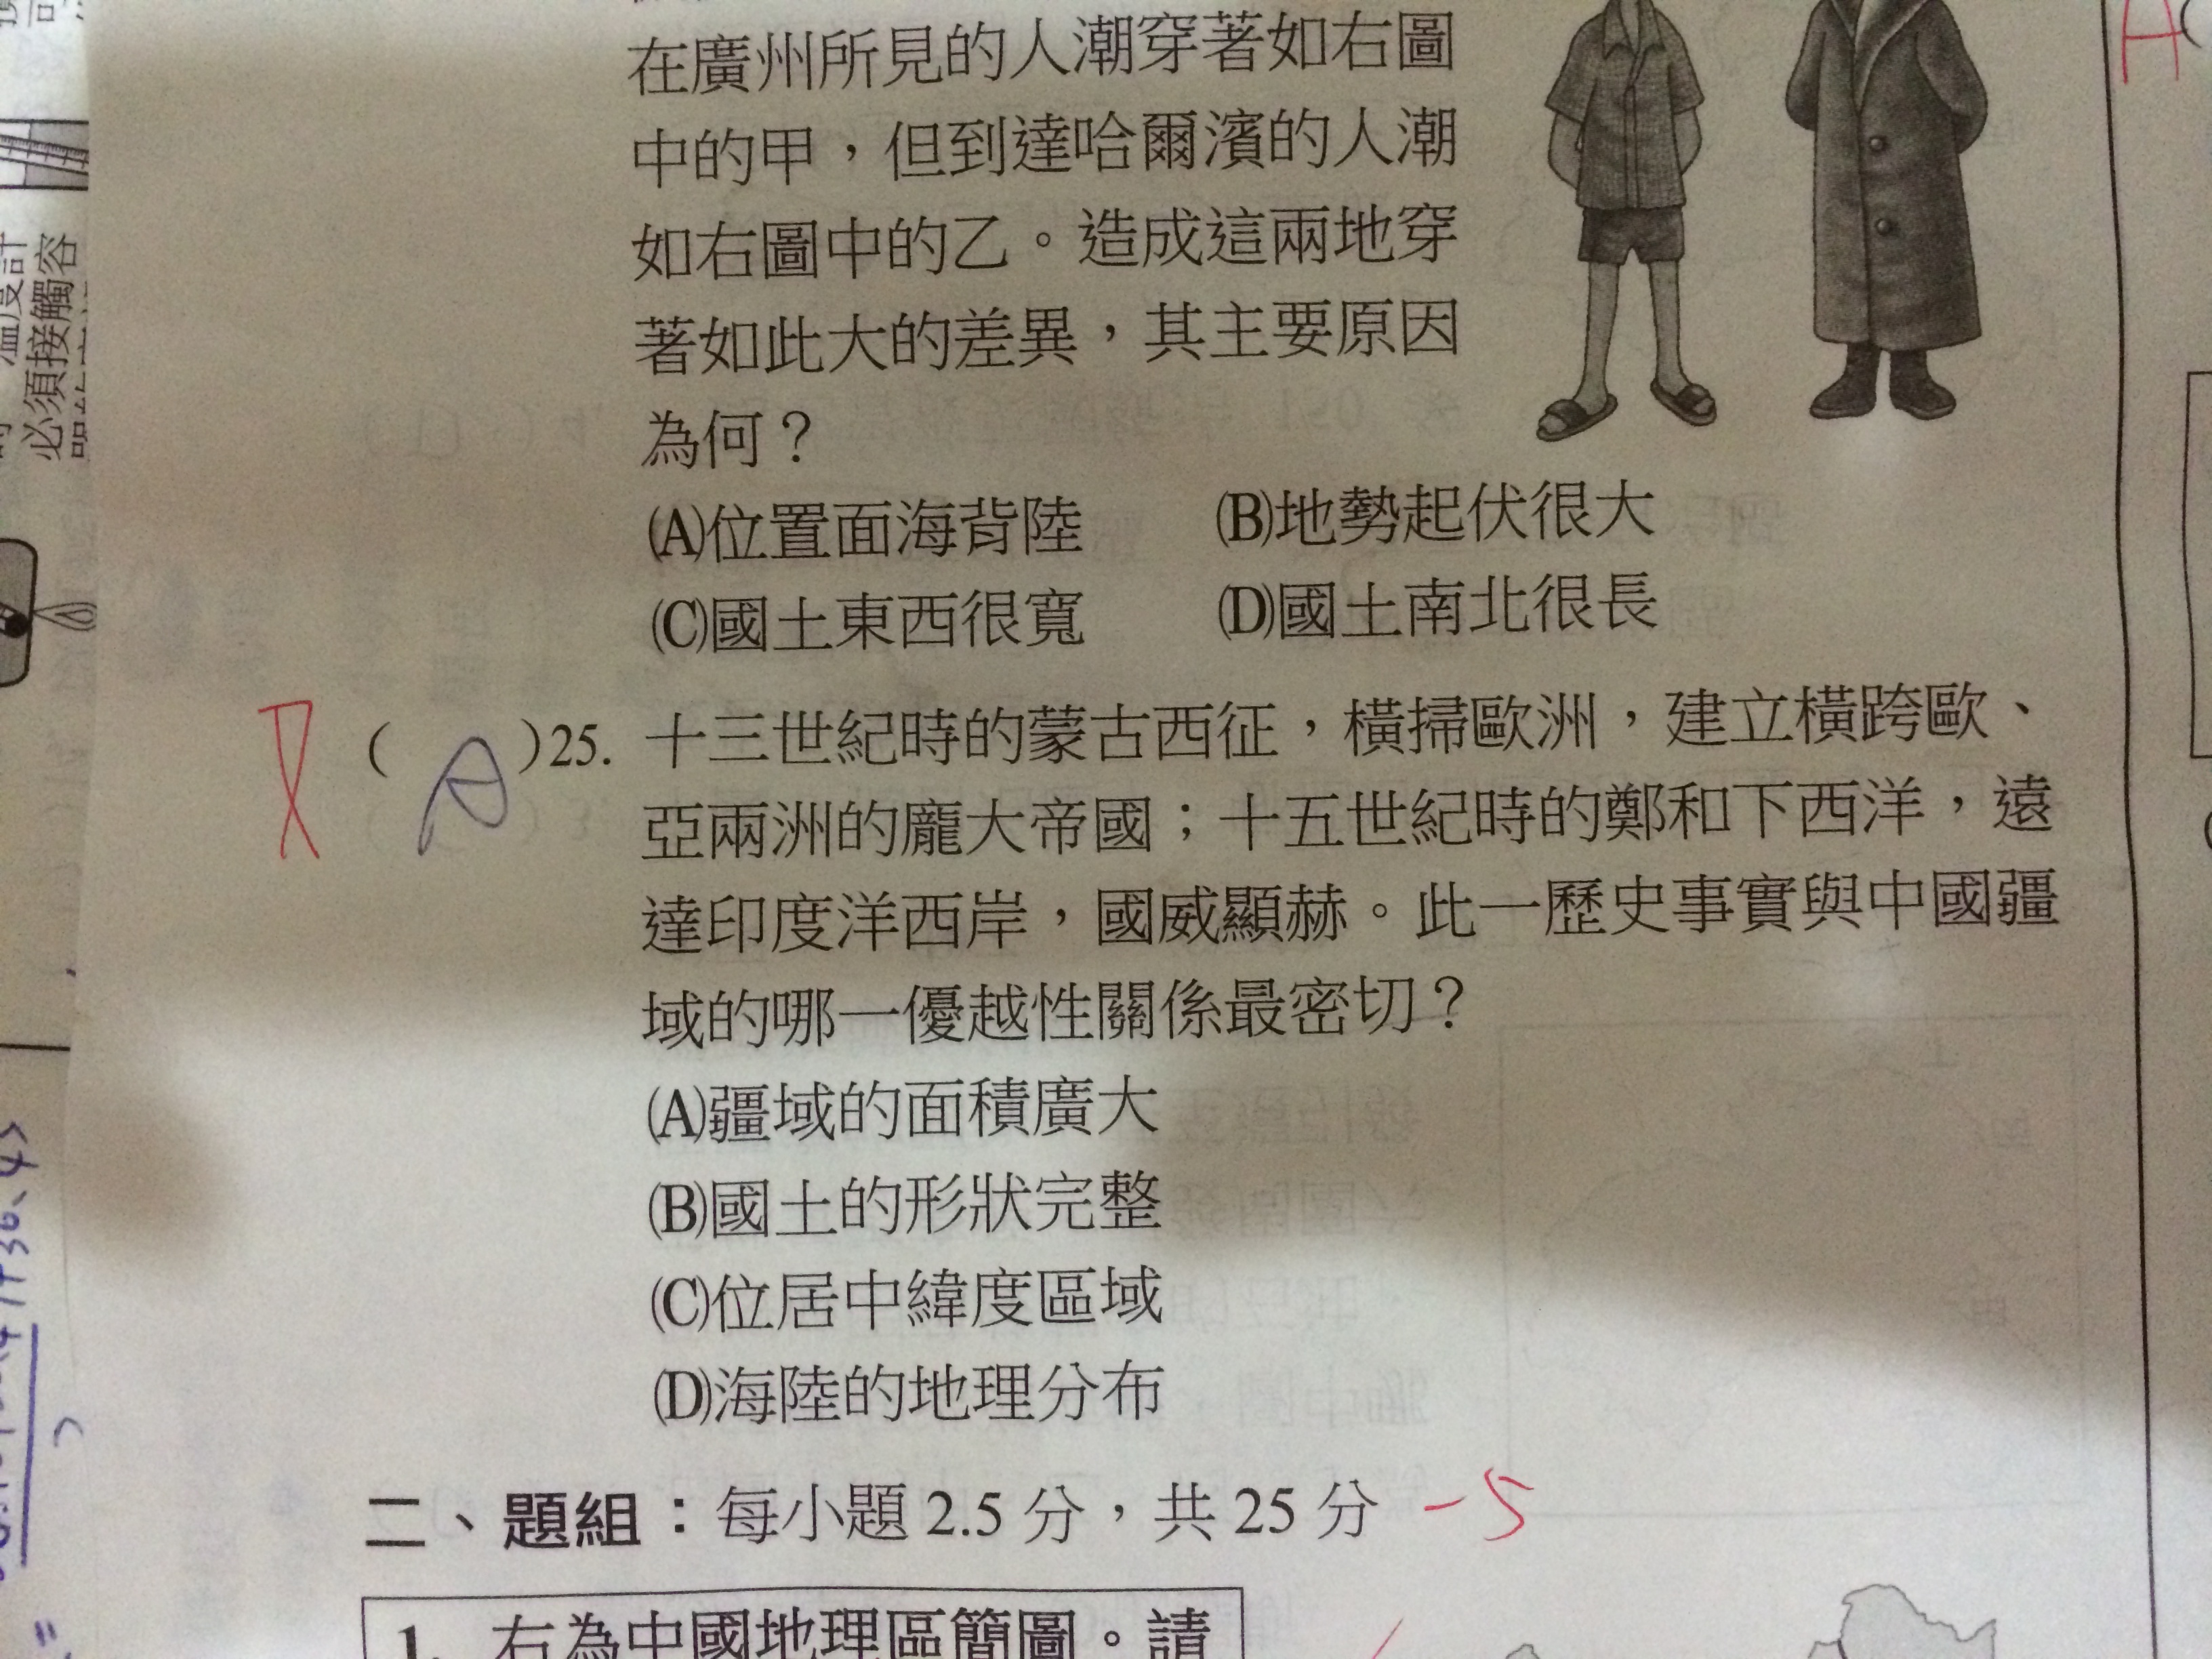 在廣州所見的人潮穿著如右圖
中的甲，但到達哈爾濱的人潮
如右圖中的乙。造成這兩地穿
著如此大的差異，其主要原因
為何？
(A)位置面海背陸 (B)地勢起伏很大
(C)國土東西很寬 (D)國土南北很長
( A )25. 十三世紀時的蒙古西征，橫掃歐洲，建立橫跨歐、
亞兩洲的龐大帝國；十五世紀時的鄭和下西洋，遠
達印度洋西岸，國威顯赫。此一歷史事實與中國疆
域的哪一優越性關係最密切？
(A)疆域的面積廣大
(B)國土的形狀完整
(C)位居中緯度區域
(D)海陸的地理分布
二、題組：每小題 2.5 分，共 25 分 -5
1. 右為中國地理區簡圖。請
必須接觸容